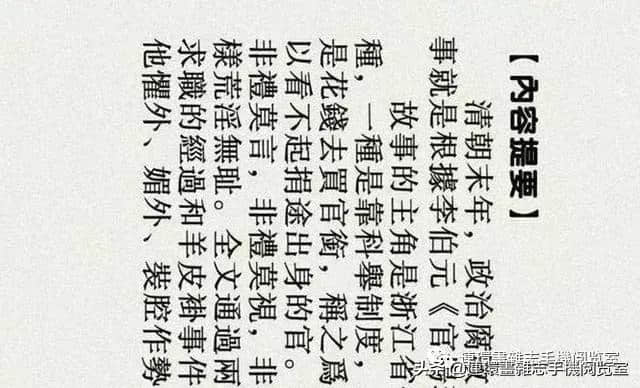 【內容提要】
清朝末年，政治腐
事就是根據李伯元《官
故事的主角是浙江省
種，一種是靠科舉制度，
是花錢去買官銜，稱之爲
以看不起捐途出身的官。
非禮莫言，非禮莫視，非
樣荒淫無恥。全文通過兩
求職的經過和羊皮褂事件
他懼外、媚外、裝腔作勢
連環畫雜志手機阅览室
头条 @連環畫雜志手機阅览室